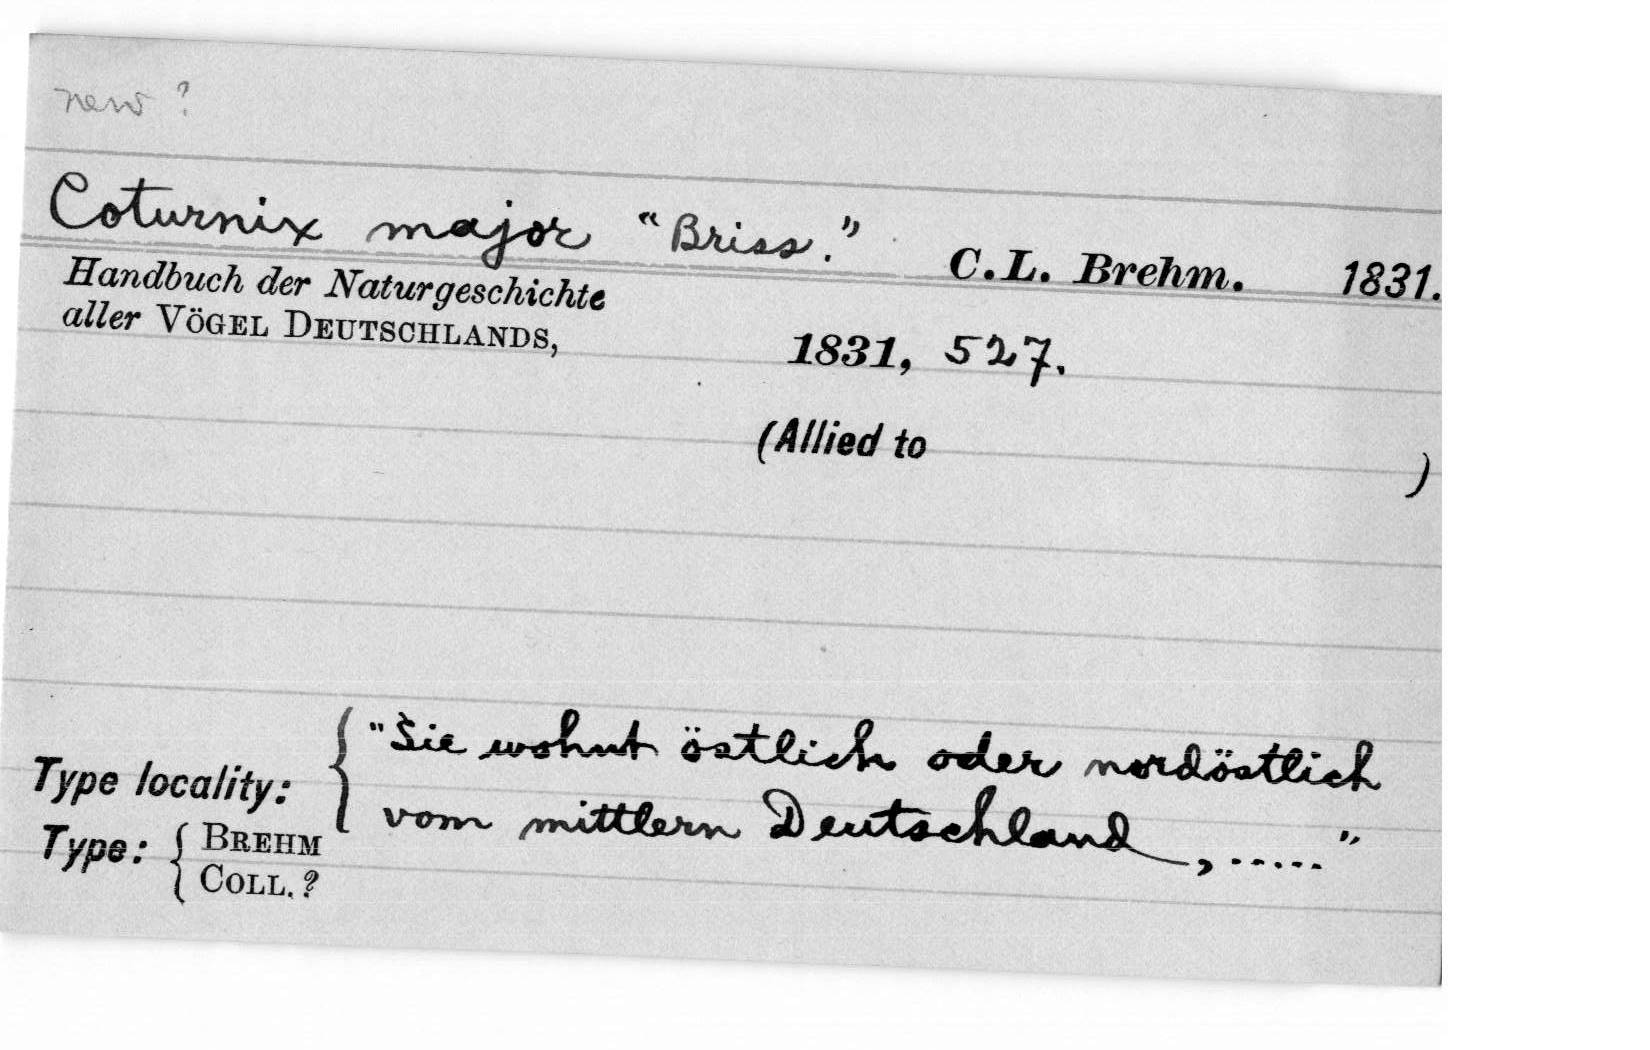 new ?
Coturnix major "Briss." C.L. Brehm. 1831.
Handbuch der Naturgeschichte
aller VÖGEL DEUTSCHLANDS,
1831, 527.
(Allied to )
Type locality: { "Sie wohnt östlich oder nordöstlich
vom mittlern Deutschland, ....."
Type: { BREHM
COLL. ?